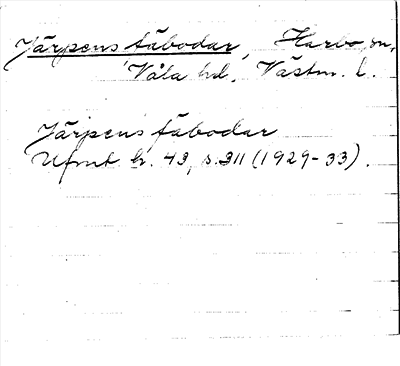 Järpens fäbodar, Harbo sn,
Våla hd, Västm. l.
Järpens fäbodar
Ufmt h. 43, s. 311 (1929-33).